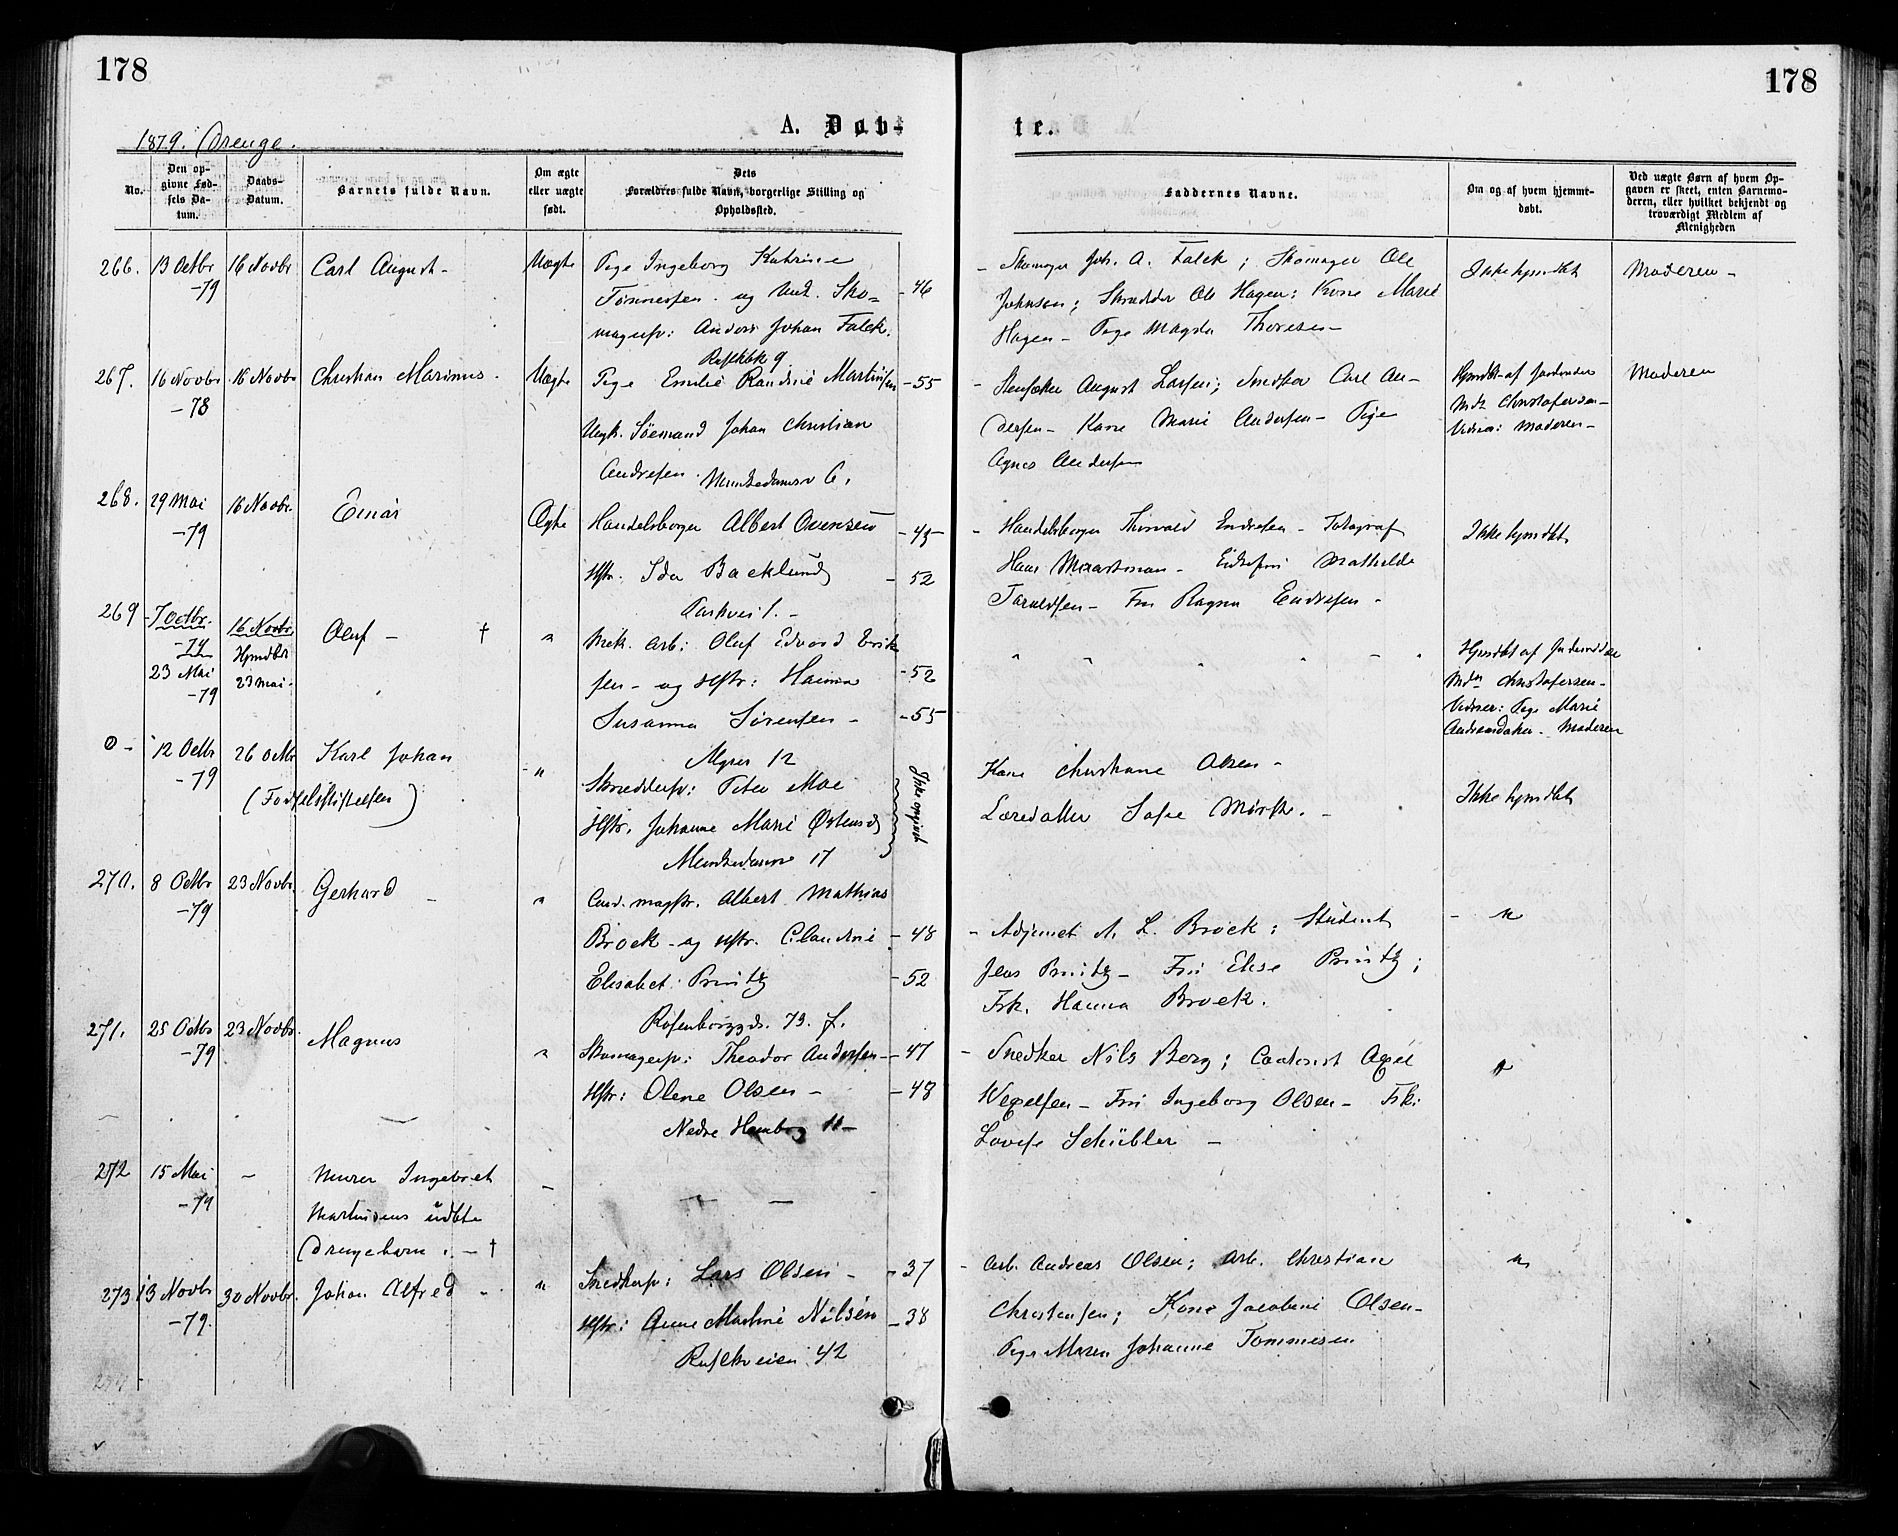 178
178
A. Døb-
te.
1879. Drenge.
No.
Den op-
givne Fød-
sels Da-
tum.
Daabs-
Datum.
Barnets fulde Navn.
Om ægte
eller uægte
født.
Dets
Forældres fulde Navn, borgerlige Stilling og
Opholdssted.
Faddernes Navne.
Om og af hvem hjemme-
døbt.
Ved uægte Børn af hvem Op-
gaven er skeet, enten Barnemo-
deren, eller hvilket bekjendt og
troværdigt Medlem af
Menigheden
266. 13 Octbr 16 Novbr Carl August - Uægte Pige Ingeborg Katrine
-79 Tønnessen. og Sko=
magersv: Anders Johan Falck.
- 46
- Skomager Joh. A. Falck; Skomager Ole
Johnsen; Skrædder Ole Hagen; Kone Marie
Hagen - Pige Magda Thoresen -
Ikke hjmdbt
Moderen -
267. 16 Novbr 16 Novbr Christian Marinus. Uægte Pige Emilie Randine Martinsen
- 78 Ungk. Sømand Johan Christian
Andresen. Munkedamsv 6.
- 55
- August Larsen; Carl An-
dersen - Kone Marie Andersen - Pige
Agnes Andersen
Hjmdbt af Jordmoder
Christofersen -
Vidner: Moderen -
Moderen
268. 29 Mai 16 Novbr. Einar Ægte Handelsborger Albert Evensen
-79 Hstr. Ida Backlund
Parkvei 1. -
- 45
- 52
- Handelsborger Thorvald Endresen - Fotograf
Hans - Mathilde
- Fru Ragna Endresen -
Ikke hjmdbt
269 7 Octbr. 16 Novbr. Oluf - † " Mek. arb: Oluf Edvard Erik
-74 Hjmdbt sen - og Hstr: Hanna
23 Mai 23 Mai - Susanna Sørensen -
-79 Myrer 12
- 52
- 55
Hjmdbt af Jordmoder
Christofersen -
Vidner: Pige Marie
- Moderen
0 - 12 Octbr 26 Octbr Karl Johan " Skræddersv: Peter Moe
-79 (Fødselsstiftelsen) Hstr. Johanne Marie
17
Ikke opgivet
Kone Christiane Olsen -
Sofie Mørk. -
Ikke hjmdbt
270. 8 Octbr 23 Novbr. Gerhard - " Cand. magstr. Albert Mathias
-79 Brock - og Hstr. Claudine
Elisabet Printz
Rosenborggd. 73. f.
- 48
- 52
- Adjunct A. L. Brock; Student
Jens Printz - Fru Elise Printz;
Frk. Hanna Brock.
- "
271. 25 Octbr 23 Novbr. Magnus " Skomagersv: Theodor Andersen
-79 Hstr: Olene Olsen -
Nedre 11 -
- 47
- 48
- Snedker Nils Berg; Axel
Wexelsen - Fru Ingeborg Olsen - Frk:
Lovise Schübler -
"
272 15 Mai - Murer Ingebret
-79 Martinsens udbte
Drengebarn. - †
273 13 Novbr 30 Novbr. Johan Alfred " Snedkersv: Lars Olsen -
-79. Hstr: Anne Martine Nilsen
42
- 37
- 38
- Arb. Andreas Olsen; Arb. Christian
Christensen; Kone Jacobine Olsen -
Pige Maren Johanne Tommesen
"
274 -